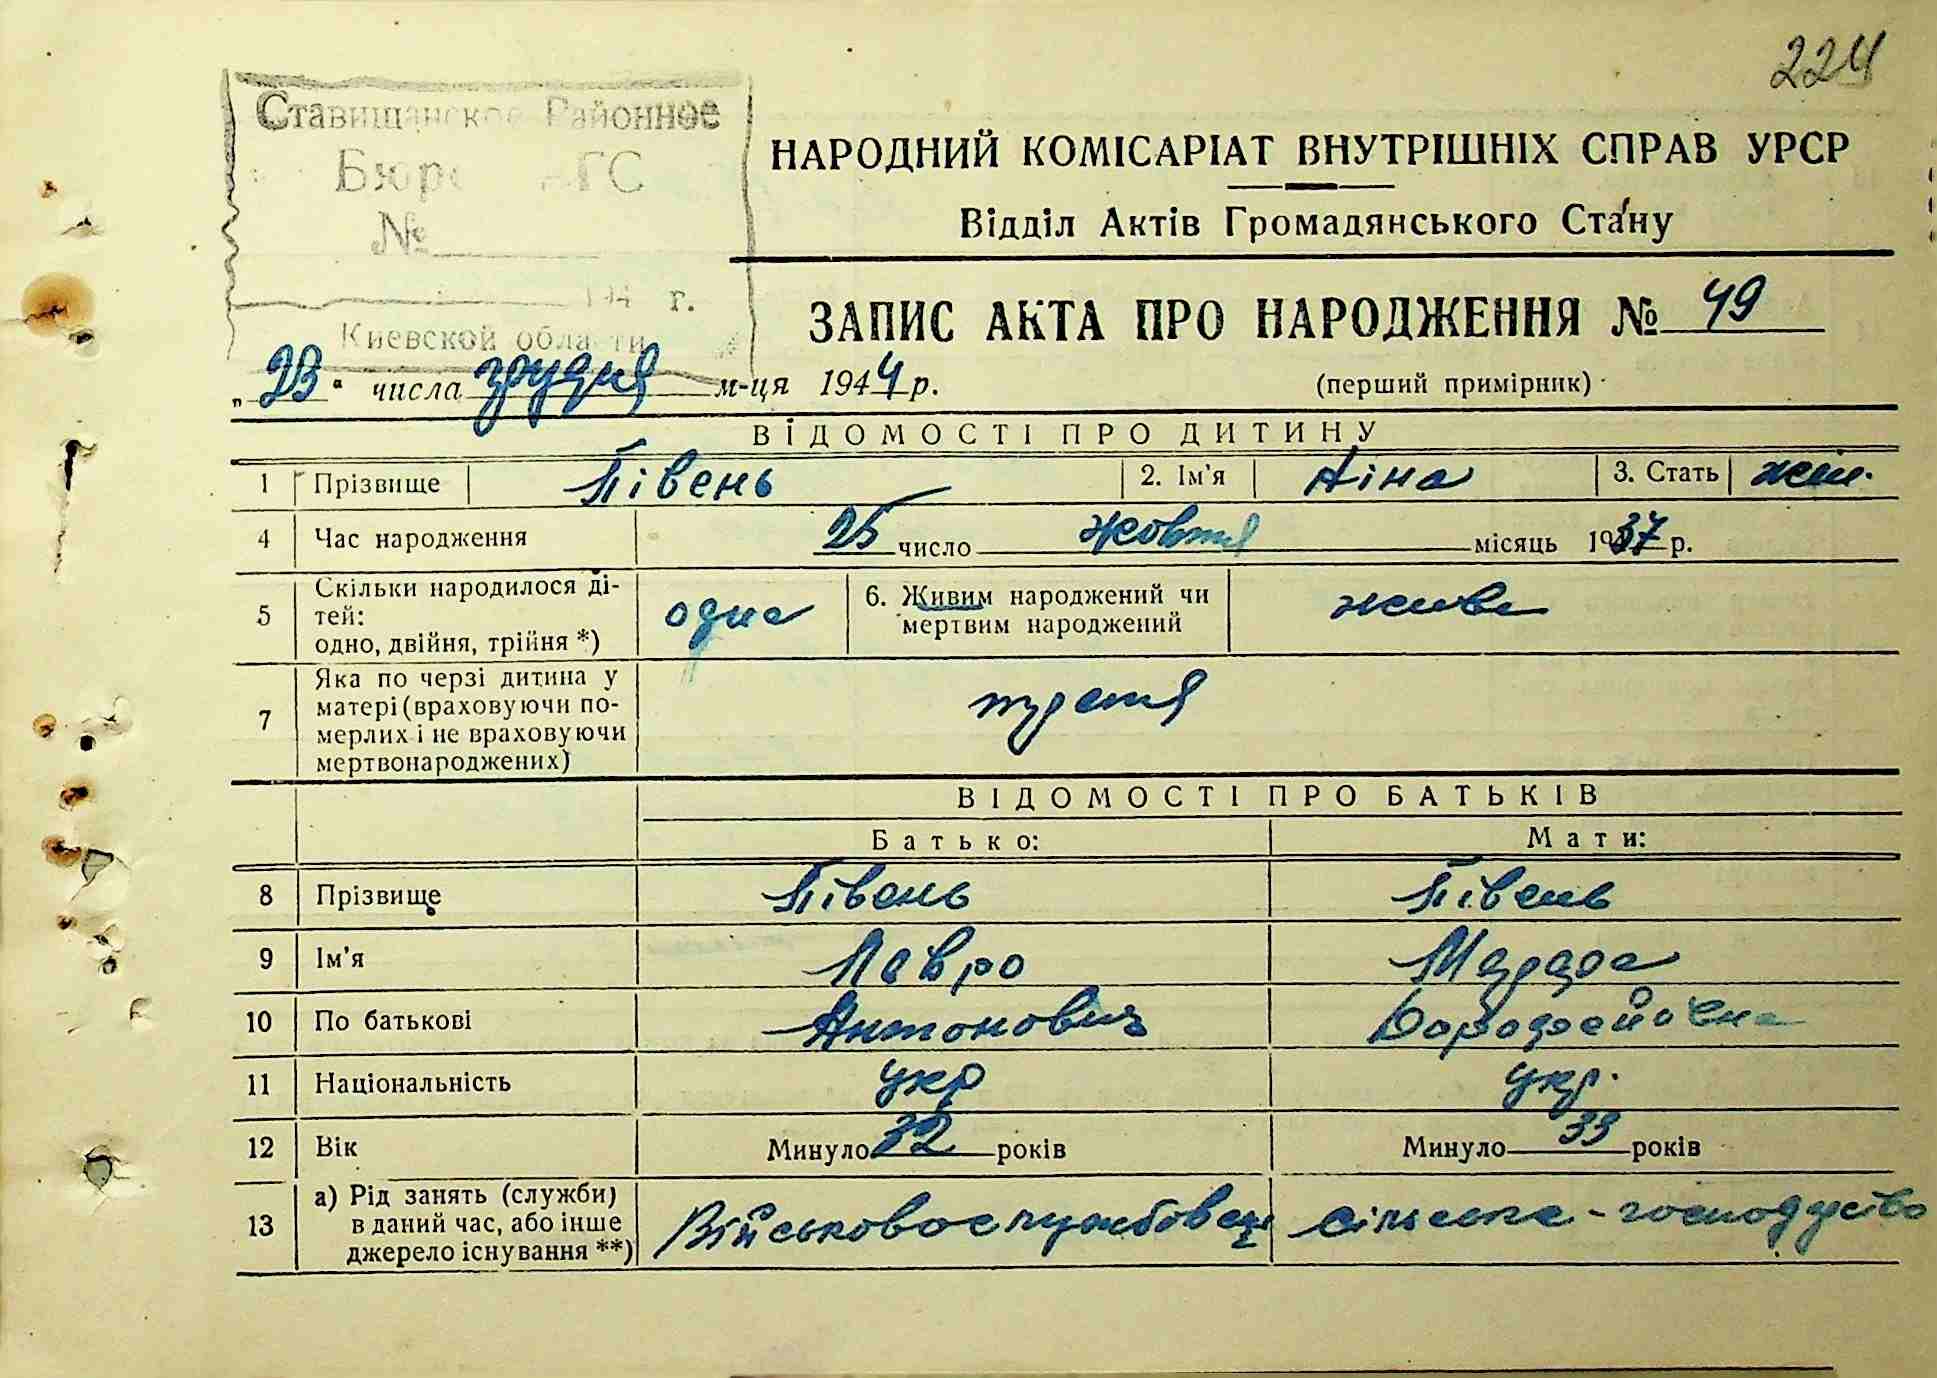 224
Ставищанское Районное
Бюро АГС
№
194 г.
Киевской области
НАРОДНИЙ КОМІСАРІАТ ВНУТРІШНІХ СПРАВ УРСР
Відділ Актів Громадянського Стану
ЗАПИС АКТА ПРО НАРОДЖЕННЯ № 49
„23“ числа грудня м-ця 1944 р. (перший примірник)
ВІДОМОСТІ ПРО ДИТИНУ
1 Прізвище Півень 2. Ім'я Ніна 3. Стать жін.
4 Час народження 25 число жовтня місяць 1937 р.
5 Скільки народилося ді-
тей:
одно, двійня, трійня *) одна 6. Живим народжений чи
мертвим народжений живе
7 Яка по черзі дитина у
матері (враховуючи по-
мерлих і не враховуючи
мертвонароджених) третя
ВІДОМОСТІ ПРО БАТЬКІВ
Батько: Мати:
8 Прізвище Півень Півень
9 Ім'я Лавро
10 По батькові Антонович Дорофейовна
11 Національність укр укр.
12 Вік Минуло 32 років Минуло 33 років
13 а) Рід занять (служби)
в даний час, або інше
джерело існування **) Військовослужбовец сільське-господарство